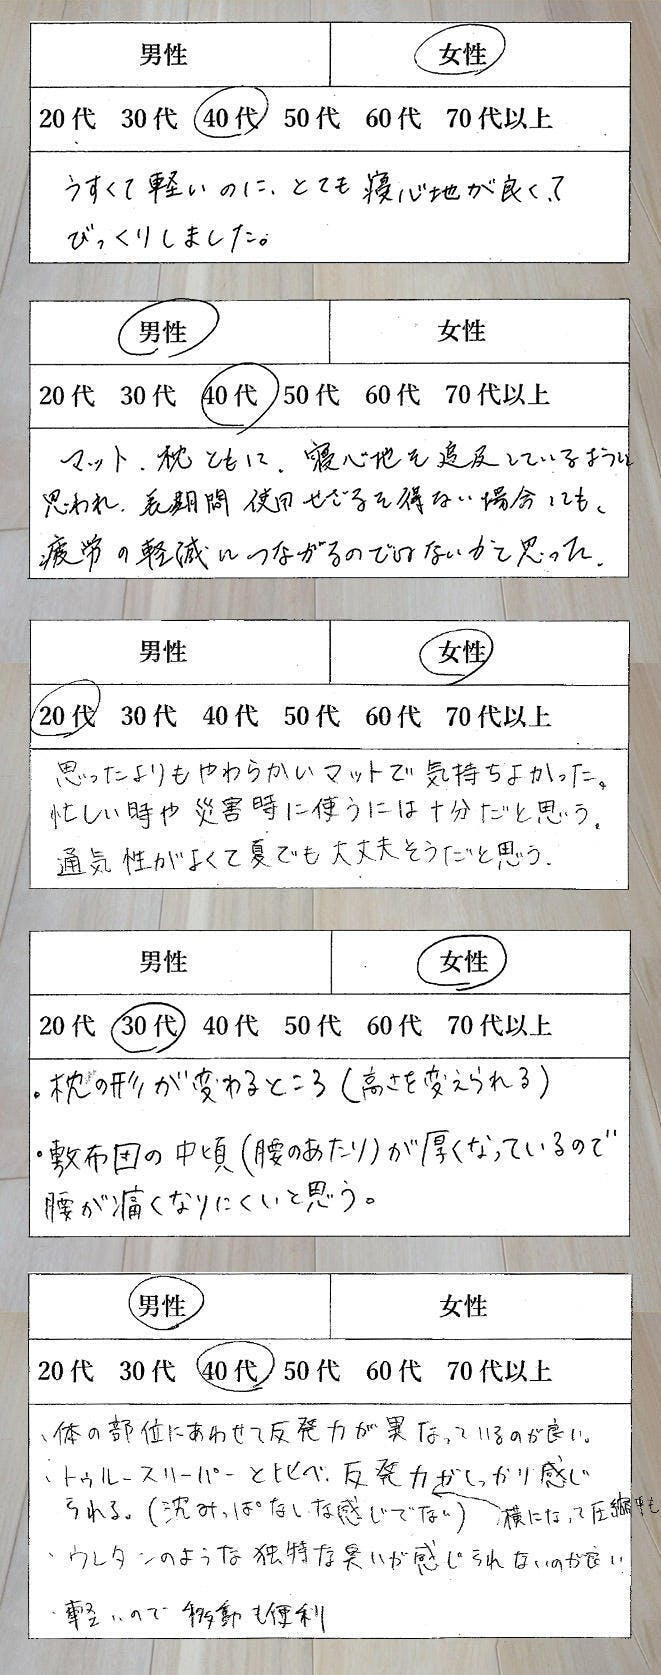 男性 女性
20代 30代 40代 50代 60代 70代以上
うすくて軽いのに、とても寝心地が良くて
びっくりしました。
男性 女性
20代 30代 40代 50代 60代 70代以上
マット、枕ともに、寝心地を追及しているように
思われ、長期間使用せざるを得ない場合でも、
疲労の軽減につながるのではないかと思った。
男性 女性
20代 30代 40代 50代 60代 70代以上
思ったよりもやわらかいマットで気持ちよかった。
忙しい時や災害時に使うには十分だと思う。
通気性がよくて夏でも大丈夫そうだと思う。
男性 女性
20代 30代 40代 50代 60代 70代以上
・枕の形が変わるところ(高さを変えられる)
・敷布団の中頃(腰のあたり)が厚くなっているので
腰が痛くなりにくいと思う。
男性 女性
20代 30代 40代 50代 60代 70代以上
・体の部位にあわせて反発力が異なっているのが良い。
・トゥルースリーパーと比べ、反発力がしっかり感じ
られる。(沈みっぱなしな感じでない) 横になって圧縮中も
・ウレタンのような独特な臭いが感じられないのが良い
・軽いので移動も便利